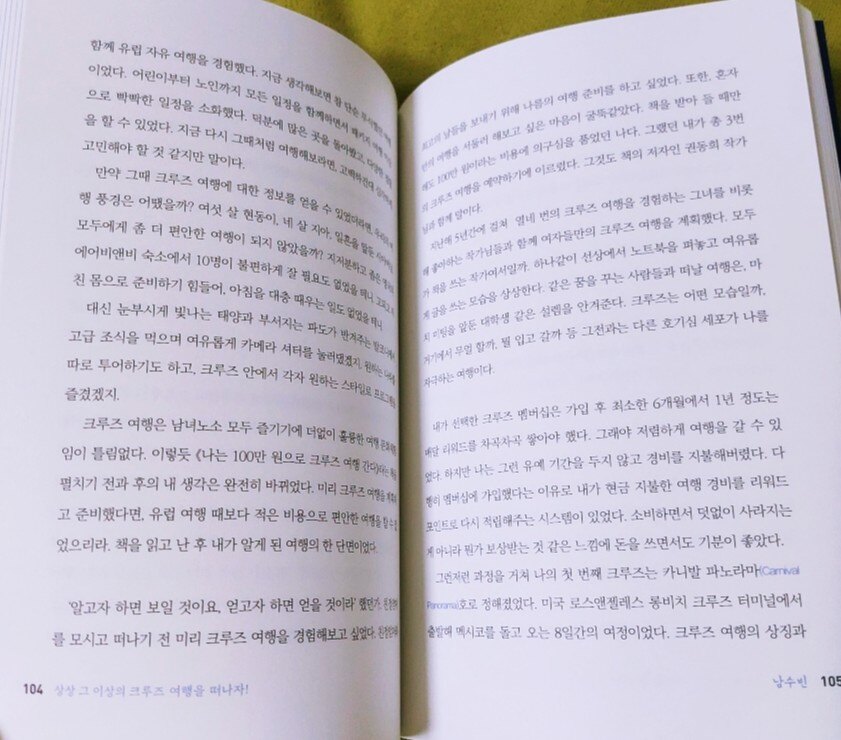 함께 유럽 자유 여행을 경험했다. 지금 생각해보면 참 단순 무식했던
이었다. 어린이부터 노인까지 모든 일정을 함께하면서 패키지 여행
으로 빡빡한 일정을 소화했다. 덕분에 많은 곳을 돌아봤고, 다양한
을 할 수 있었다. 지금 다시 그때처럼 여행해보라면, 고백하건대
고민해야 할 것 같지만 말이다.
만약 그때 크루즈 여행에 대한 정보를 얻을 수 있었더라면,
행 풍경은 어땠을까? 여섯 살 현동이, 네 살 지아, 일흔을 앞둔
모두에게 좀 더 편안한 여행이 되지 않았을까? 지저분하고 좁은
에어비앤비 숙소에서 10명이 불편하게 잘 필요도 없었을 테니,
친 몸으로 준비하기 힘들어, 아침을 대충 때우는 일도 없었을 테니.
대신 눈부시게 빛나는 태양과 부서지는 파도가 반겨주는 발코니에서
고급 조식을 먹으며 여유롭게 카메라 셔터를 눌러댔겠지. 원하는
따로 투어하기도 하고, 크루즈 안에서 각자 원하는 스타일로 프로그램을
즐겼겠지.
크루즈 여행은 남녀노소 모두 즐기기에 더없이 훌륭한 여행
임이 틀림없다. 이렇듯 《나는 100만 원으로 크루즈 여행 간다》라는 책을
펼치기 전과 후의 내 생각은 완전히 바뀌었다. 미리 크루즈 여행을 계획하
고 준비했다면, 유럽 여행 때보다 적은 비용으로 편안한 여행을 할 수 있
었으리라. 책을 읽고 난 후 내가 알게 된 여행의 한 단면이었다.
‘알고자 하면 보일 것이요, 얻고자 하면 얻을 것이라’ 했던가.
를 모시고 떠나기 전 미리 크루즈 여행을 경험해보고 싶었다.
104 상상 그 이상의 크루즈 여행을 떠나자!
최고의 날들을 보내기 위해 나름의 여행 준비를 하고 싶었다. 또한, 혼자
만의 여행을 서둘러 해보고 싶은 마음이 굴뚝같았다. 책을 받아 들 때만
해도 100만 원이라는 비용에 의구심을 품었던 나다. 그랬던 내가 총 3번
의 크루즈 여행을 예약하기에 이르렀다. 그것도 책의 저자인 권동희 작가
님과 함께 말이다.
지난해 5년간에 걸쳐 열네 번의 크루즈 여행을 경험하는 그녀를 비롯
해 좋아하는 작가님들과 함께 여자들만의 크루즈 여행을 계획했다. 모두
가 책을 쓰는 작가여서일까. 하나같이 선상에서 노트북을 펴놓고 여유롭
게 글을 쓰는 모습을 상상한다. 같은 꿈을 꾸는 사람들과 떠날 여행은, 마
치 미팅을 앞둔 대학생 같은 설렘을 안겨준다. 크루즈는 어떤 모습일까,
거기에서 무얼 할까, 뭘 입고 갈까 등 그전과는 다른 호기심 세포가 나를
자극하는 여행이다.
내가 선택한 크루즈 멤버십은 가입 후 최소한 6개월에서 1년 정도는
매달 리워드를 차곡차곡 쌓아야 했다. 그래야 저렴하게 여행을 갈 수 있
었다. 하지만 나는 그런 유예 기간을 두지 않고 경비를 지불해버렸다. 다
행히 멤버십에 가입했다는 이유로 내가 현금 지불한 여행 경비를 리워드
포인트로 다시 적립해주는 시스템이 있었다. 소비하면서 덧없이 사라지는
게 아니라 뭔가 보상받는 것 같은 느낌에 돈을 쓰면서도 기분이 좋았다.
그런저런 과정을 거쳐 나의 첫 번째 크루즈는 카니발 파노라마(Carnival
Panorama)호로 정해졌었다. 미국 로스앤젤레스 롱비치 크루즈 터미널에서
출발해 멕시코를 돌고 오는 8일간의 여정이었다. 크루즈 여행의 상징과
남수빈 105